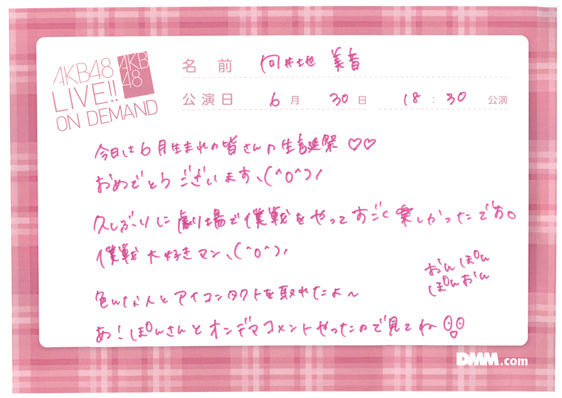 AKB48
LIVE!!
ON DEMAND
AKB
48
名前 向井地 美音
公演日 6月 30日 18:30 公演
今日は6月生まれの皆さんの生誕祭♡♡
おめでとうございます、(^o^)ノ
久しぶりに劇場で僕戦をやってすごく楽しかったです。
僕戦大好きマン、(^o^)ノ
色んな人とアイコンタクトを取れたよ〜
あ!ぽんさんとオンデマコメントやったので見てね
おんぽん
ぽんおん
DMM.com